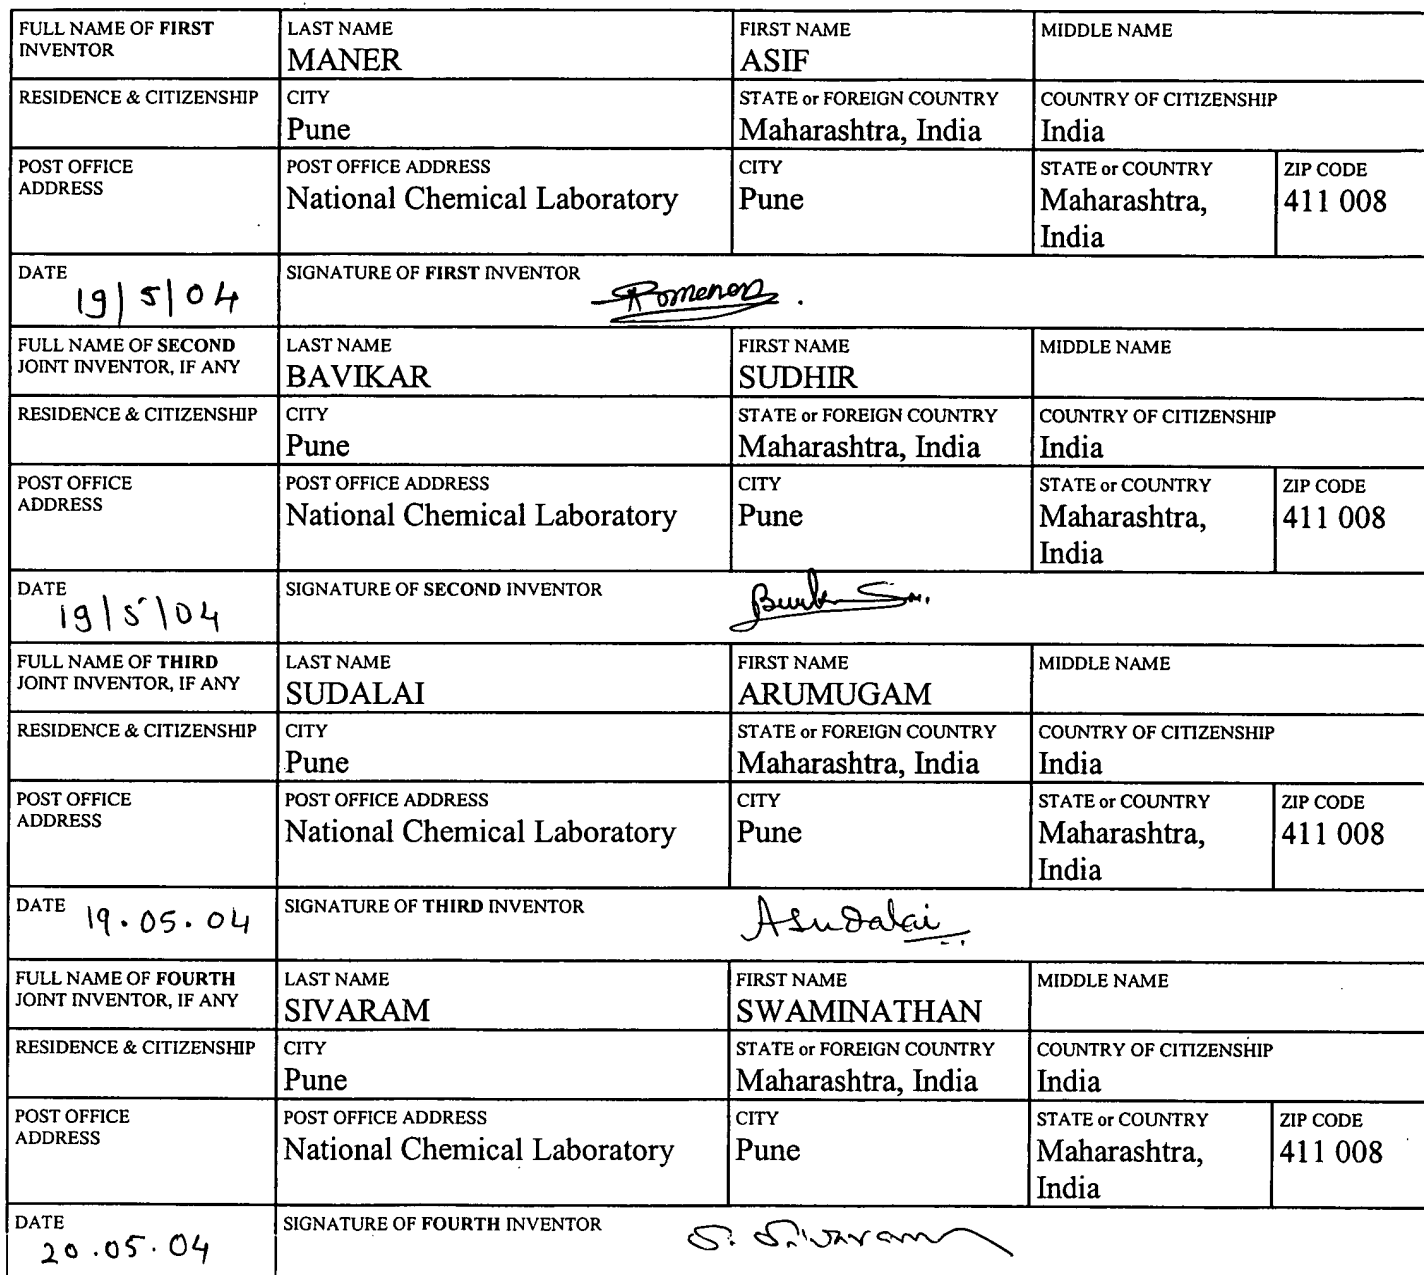 FULL NAME OF FIRST INVENTOR
LAST NAME
MANER
FIRST NAME
ASIF
MIDDLE NAME
RESIDENCE & CITIZENSHIP
CITY
Pune
STATE or FOREIGN COUNTRY
Maharashtra, India
COUNTRY OF CITIZENSHIP
India
POST OFFICE
ADDRESS
POST OFFICE ADDRESS
National Chemical Laboratory
CITY
Pune
STATE or COUNTRY
Maharashtra,
India
ZIP CODE
411 008
DATE
19/5/04
SIGNATURE OF FIRST INVENTOR
FULL NAME OF SECOND
JOINT INVENTOR, IF ANY
LAST NAME
BAVIKAR
FIRST NAME
SUDHIR
MIDDLE NAME
RESIDENCE & CITIZENSHIP
CITY
Pune
STATE or FOREIGN COUNTRY
Maharashtra, India
COUNTRY OF CITIZENSHIP
India
POST OFFICE
ADDRESS
POST OFFICE ADDRESS
National Chemical Laboratory
CITY
Pune
STATE or COUNTRY
Maharashtra,
India
ZIP CODE
411 008
DATE
19/5/04
SIGNATURE OF SECOND INVENTOR
FULL NAME OF THIRD
JOINT INVENTOR, IF ANY
LAST NAME
SUDALAI
FIRST NAME
ARUMUGAM
MIDDLE NAME
RESIDENCE & CITIZENSHIP
CITY
Pune
STATE or FOREIGN COUNTRY
Maharashtra, India
COUNTRY OF CITIZENSHIP
India
POST OFFICE
ADDRESS
POST OFFICE ADDRESS
National Chemical Laboratory
CITY
Pune
STATE or COUNTRY
Maharashtra,
India
ZIP CODE
411 008
DATE
19.05.04
SIGNATURE OF THIRD INVENTOR
Asudalai
FULL NAME OF FOURTH
JOINT INVENTOR, IF ANY
LAST NAME
SIVARAM
FIRST NAME
SWAMINATHAN
MIDDLE NAME
RESIDENCE & CITIZENSHIP
CITY
Pune
STATE or FOREIGN COUNTRY
Maharashtra, India
COUNTRY OF CITIZENSHIP
India
POST OFFICE
ADDRESS
POST OFFICE ADDRESS
National Chemical Laboratory
CITY
Pune
STATE or COUNTRY
Maharashtra,
India
ZIP CODE
411 008
DATE
20.05.04
SIGNATURE OF FOURTH INVENTOR
S. Sivaram